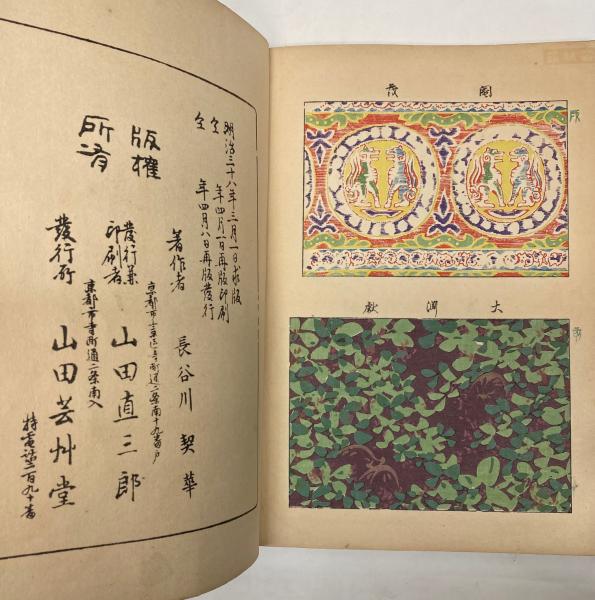 明治三十八年三月一日求版
仝 年四月一日再版印刷
仝 年四月八日再版發行
著作者 長谷川契華
京都市
發行兼
印刷者 山田直三郎
京都市寺町通二条南入
發行所 山田芸艸堂
特電話二百九十番
版權
所有
圖 茂
大 淵 獻